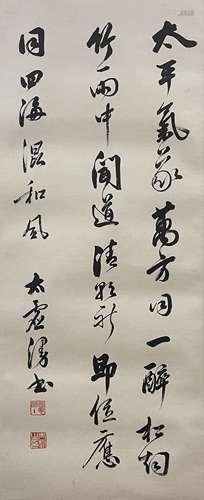 太平氣象萬方同一醉松
竹雨中聞道清新即位應
同四海混和風
太虛漫書